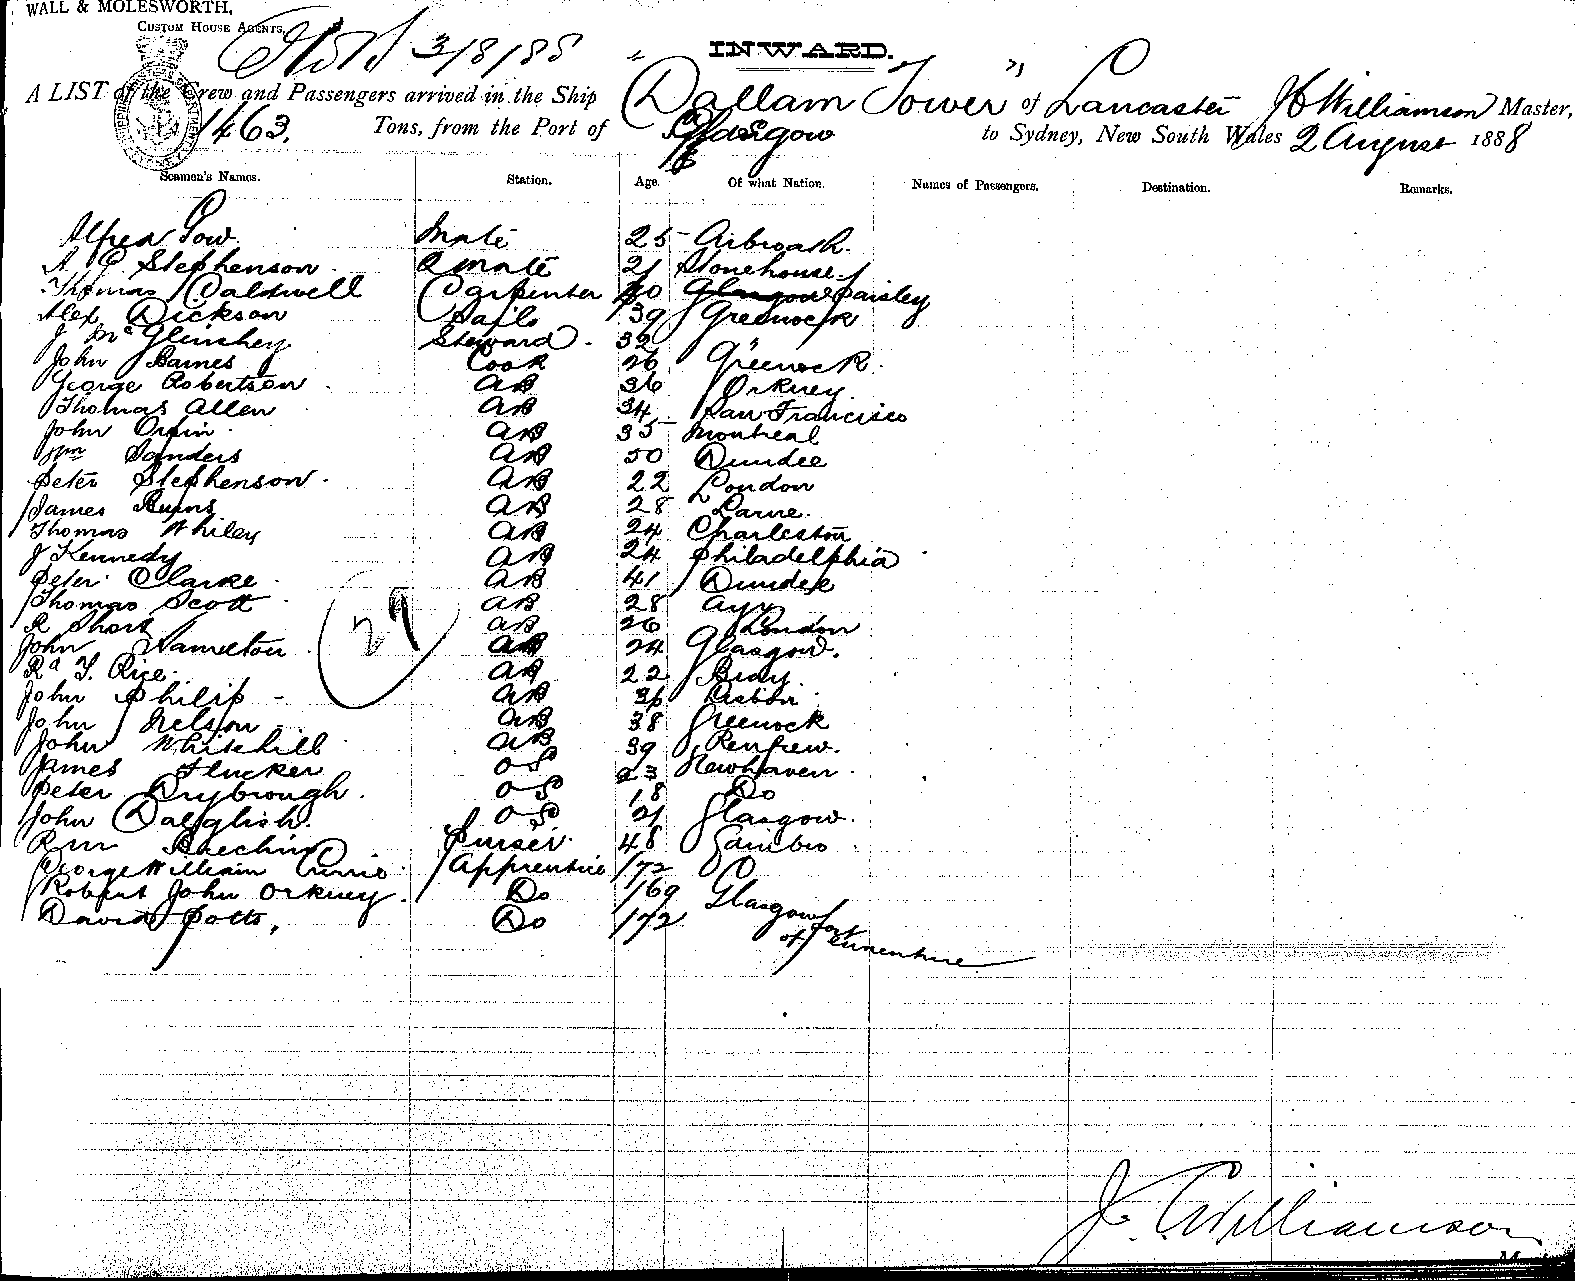 WALL & MOLESWORTH,
CUSTOM HOUSE AGENTS,
3/8/88
INWARD.
A LIST of the Crew and Passengers arrived in the Ship "Dallam Tower" of Lancaster J C Williamson Master,
1463. Tons, from the Port of Glasgow to Sydney, New South Wales 2 August 1888
Seamen's Names. Station. Age. Of what Nation. Names of Passengers. Destination. Remarks.
Alfred Low Mate 25 Arbroath.
A Stephenson 2 Mate 21 Stonehouse
Thomas Caldwell Carpenter 40 Glasgow Paisley
Alex Dickson Sails 39 Greenock
J Steward. 32 "
John Barnes Cook 26 Greenock.
George Robertson AB 36 Orkney
Thomas Allen AB 34 San Francisco
John AB 35 Montreal
Wm Sanders AB 50 Dundee
Peter Stephenson. AB 22 London
James Burns AB 28 Larne.
Thomas Whiley AB 24 Charleston
J Kennedy AB 24 Philadelphia
Peter Clarke AB 41 Dundee
Thomas Scott AB 28 Ayr
R Short AB 26 London
John Hamilton AB 24 Glasgow.
Rd T. Rice. AB 22 Bray.
John Philip - AB 36 Lisbon
John Nelson AB 38 Greenock
John Whitehill AB 39 Renfrew.
James Flucker OS 23 Newhaven.
Peter Drybrough. OS 18 Do
John Dalglish. OS 21 Glasgow.
Purser. 48
George William Currie Apprentice /72
Robert John Orkney. Do /169 Glasgow
David Potts, Do /172
port of Indenture
29
J. C. Williamson